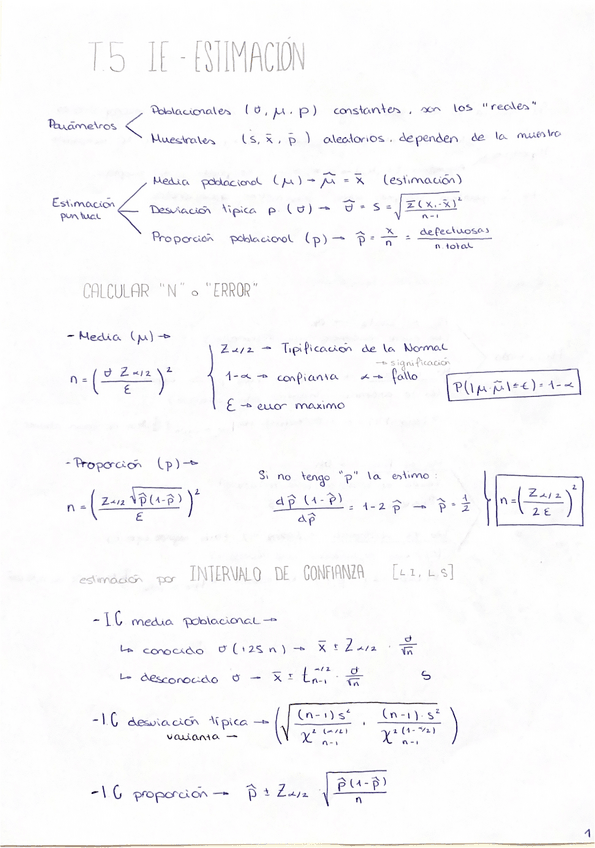 T.5 IE - ESTIMACIÓN
Parámetros
Poblacionales (σ, μ, p) constantes, son los "reales"
Muestrales (s, x̄, p̄) aleatorios, dependen de la muestra
Estimación puntual
Media poblacional (μ) → μ̂ = x̄ (estimación)
Desviación típica p (σ) → σ̂ = s = √(Σ(xᵢ-x̄)²/(n-1))
Proporción poblacional (p) → p̂ = x/n = defectuosas/n total
CALCULAR "N" o "ERROR"
- Media (μ) →
n = (σ Zα/2 / ε)²
Zα/2 → Tipificación de la Normal
→ significación
1-α → confianza α → fallo
ε → error maximo
P(|μ-μ̂|=ε) = 1-α
- Proporción (p) →
n = (Zα/2 √(p̂(1-p̂)) / ε)²
Si no tengo "p" la estimo:
dp̂(1-p̂)/dp̂ = 1-2p̂ → p̂ = 1/2
n = (Zα/2 / 2ε)²
estimación por INTERVALO DE CONFIANZA [LI, LS]
- IC media poblacional →
↳ conocido σ (+25n) → x̄ ± Zα/2 · σ/√n
↳ desconocido σ → x̄ ± t^(α/2)_(n-1) · σ/√n S
- IC desviación típica → (√((n-1)s²/χ²^(α/2)_(n-1)), (n-1)·s²/χ²^(1-α/2)_(n-1))
varianza →
- IC proporción → p̂ ± Zα/2 · √(p̂(1-p̂)/n)
1